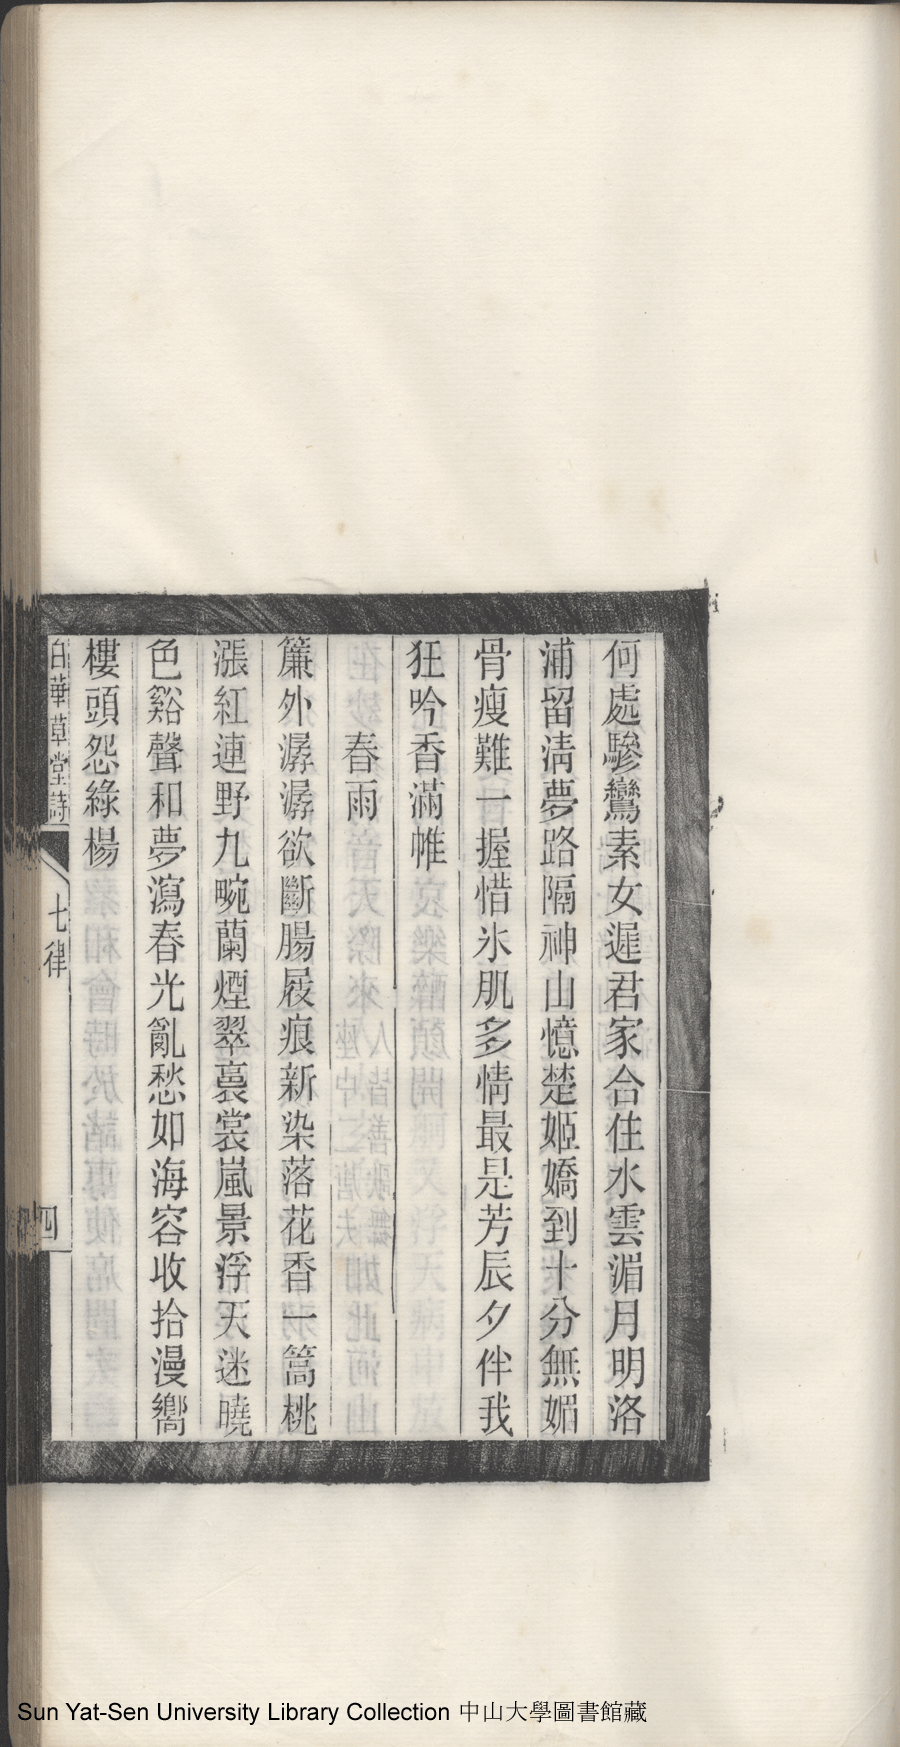 何處驂鸞素女遲君家合住水雲湄月明洛
浦留淸夢路隔神山憶楚姬嬌到十分無媚
骨瘦難一握惜氷肌多情最是芳辰夕伴我
狂吟香滿帷
春雨
簾外潺潺欲斷腸屐痕新染落花香一篙桃
漲紅連野九畹蘭煙翠裛裳嵐景浮天迷曉
色谿聲和夢瀉春光亂愁如海容收拾漫嚮
樓頭怨綠楊
白華草堂詩
七律
四
Sun Yat-Sen University Library Collection 中山大學圖書館藏